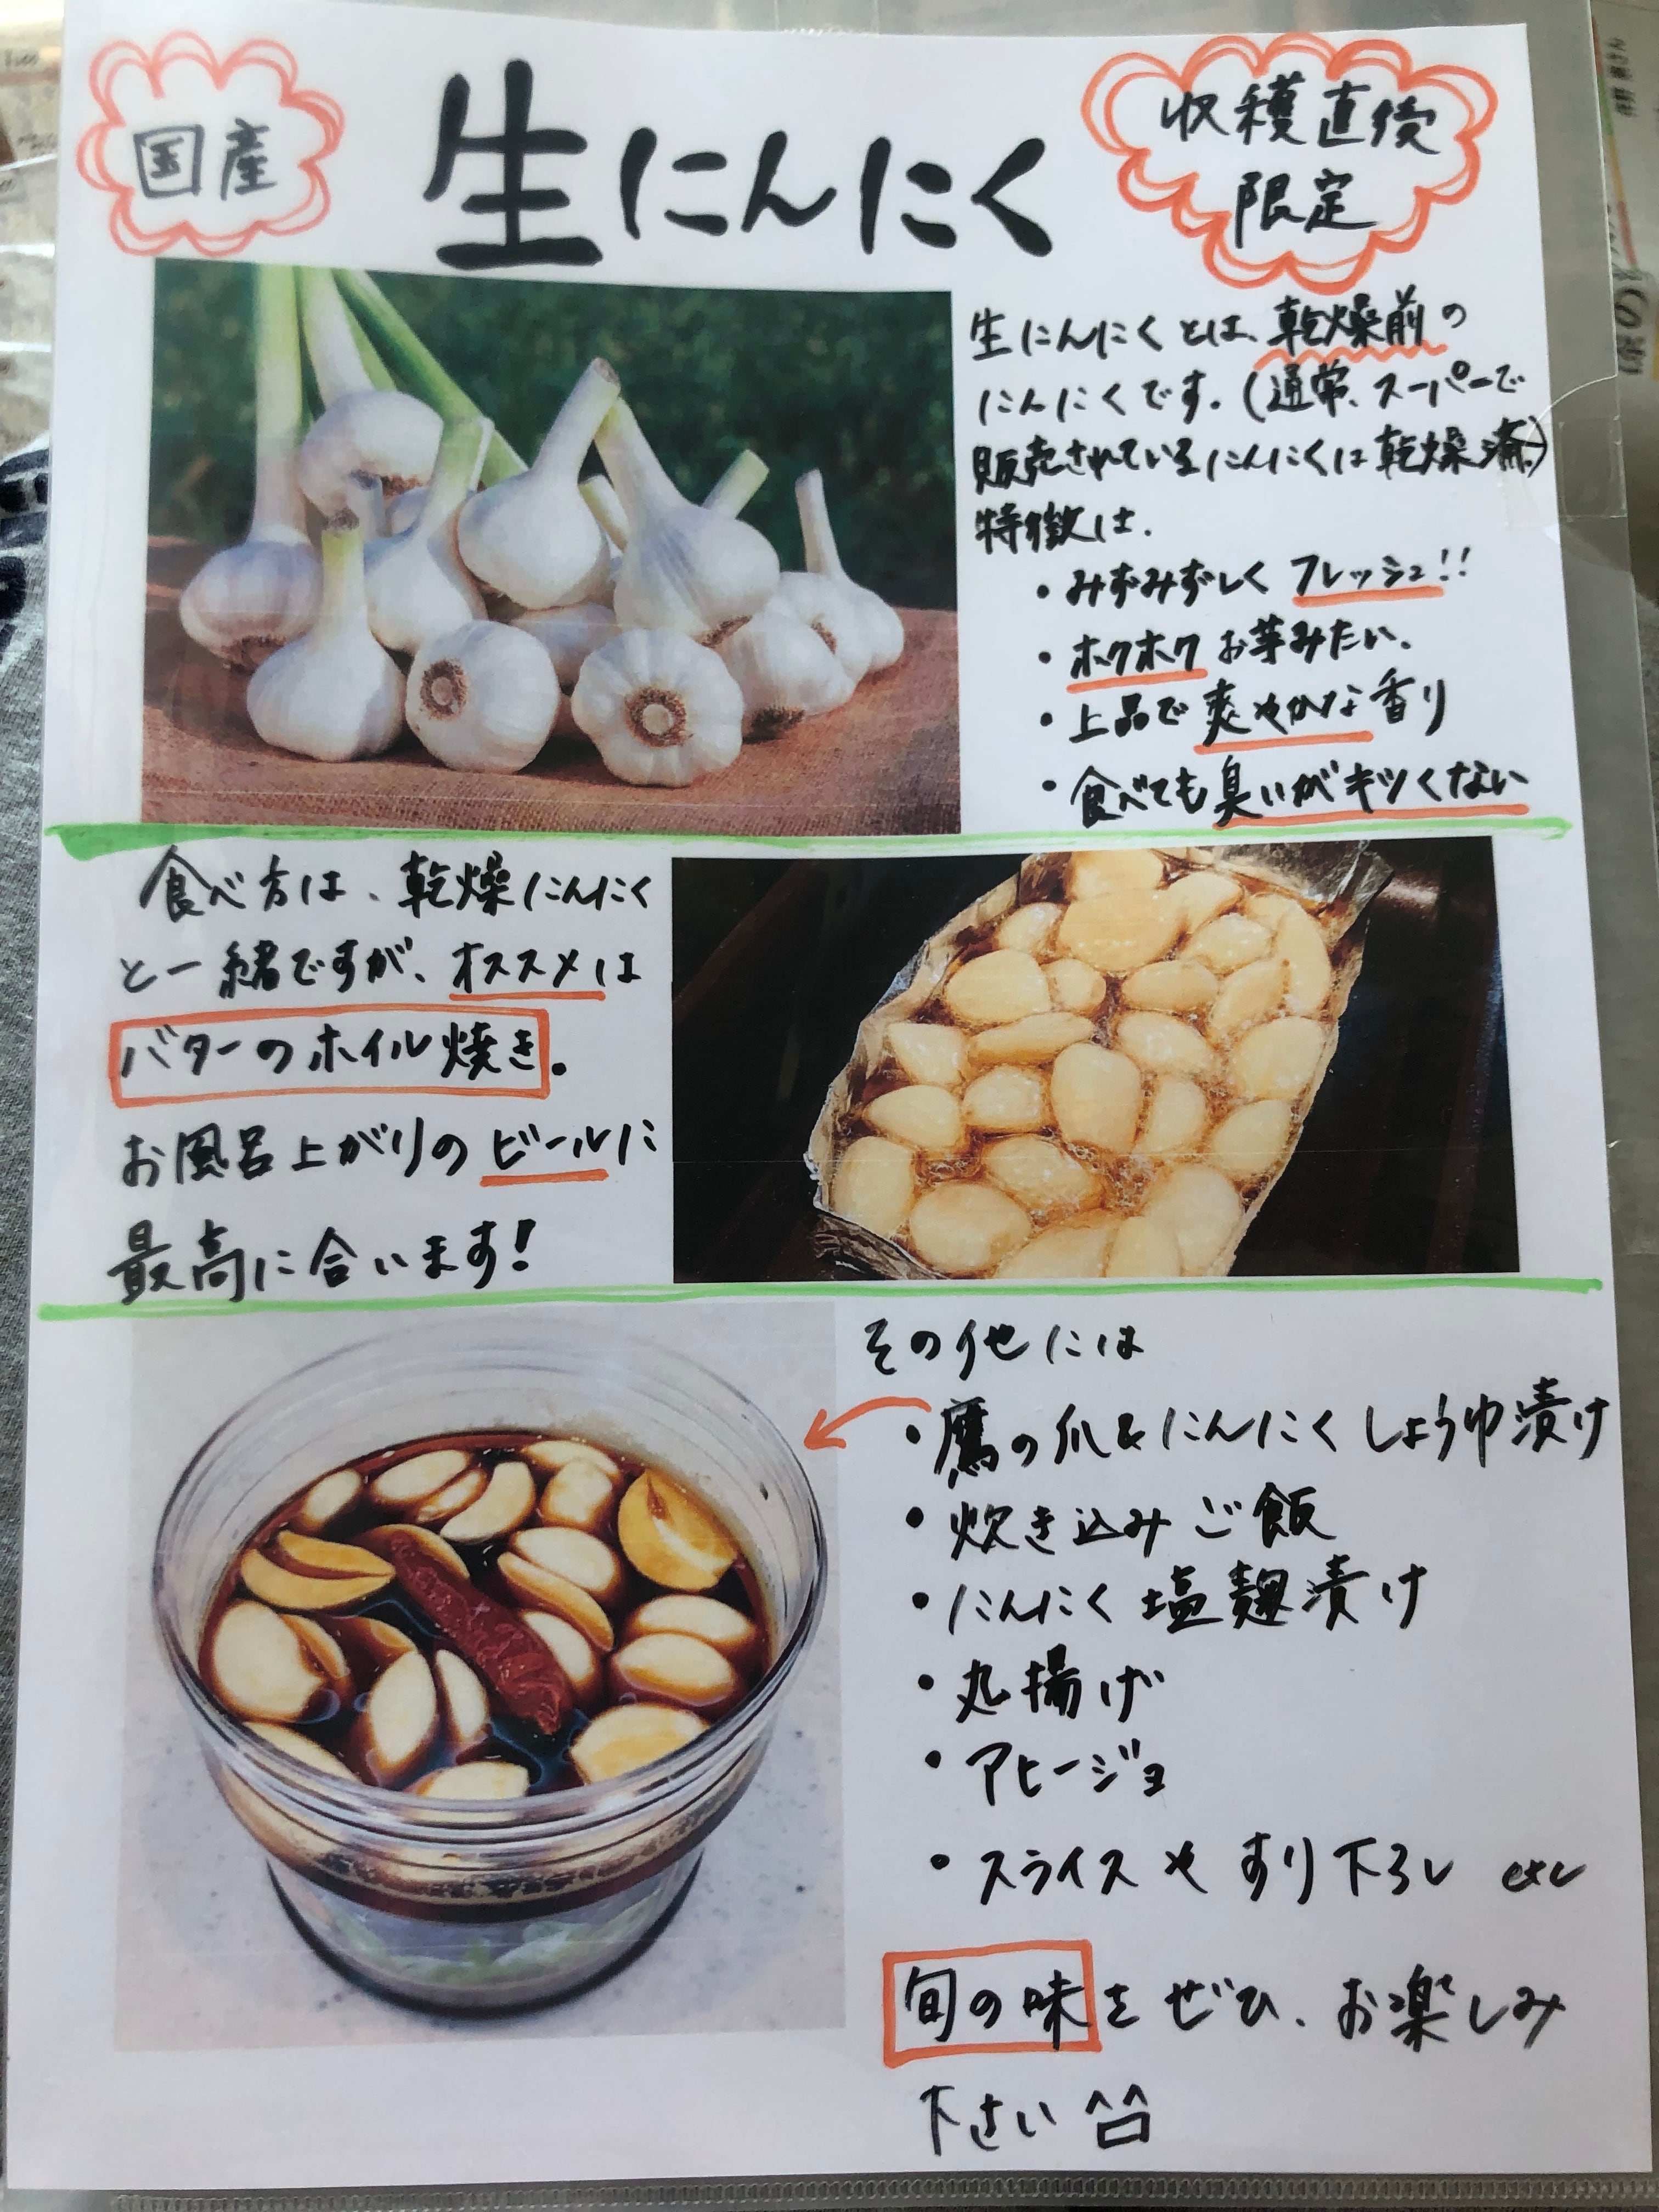 国産
生にんにく
収穫直後
限定
生にんにくとは、乾燥前の
にんにくです。(通常、スーパーで
販売されているにんにくは乾燥済)
特徴は、
・みずみずしくフレッシュ!!
・ホクホクお芋みたい、
・上品で爽やかな香り
・食べても臭いがキツくない
食べ方は、乾燥にんにく
と一緒ですが、オススメは
バターのホイル焼き。
お風呂上がりのビールに
最高に合います!
その他には
・鷹の爪&にんにくしょうゆ漬け
・炊き込みご飯
・にんにく塩麹漬け
・丸揚げ
・アヒージョ
・スライスやすり下ろし etc
旬の味をぜひ、お楽しみ
下さい